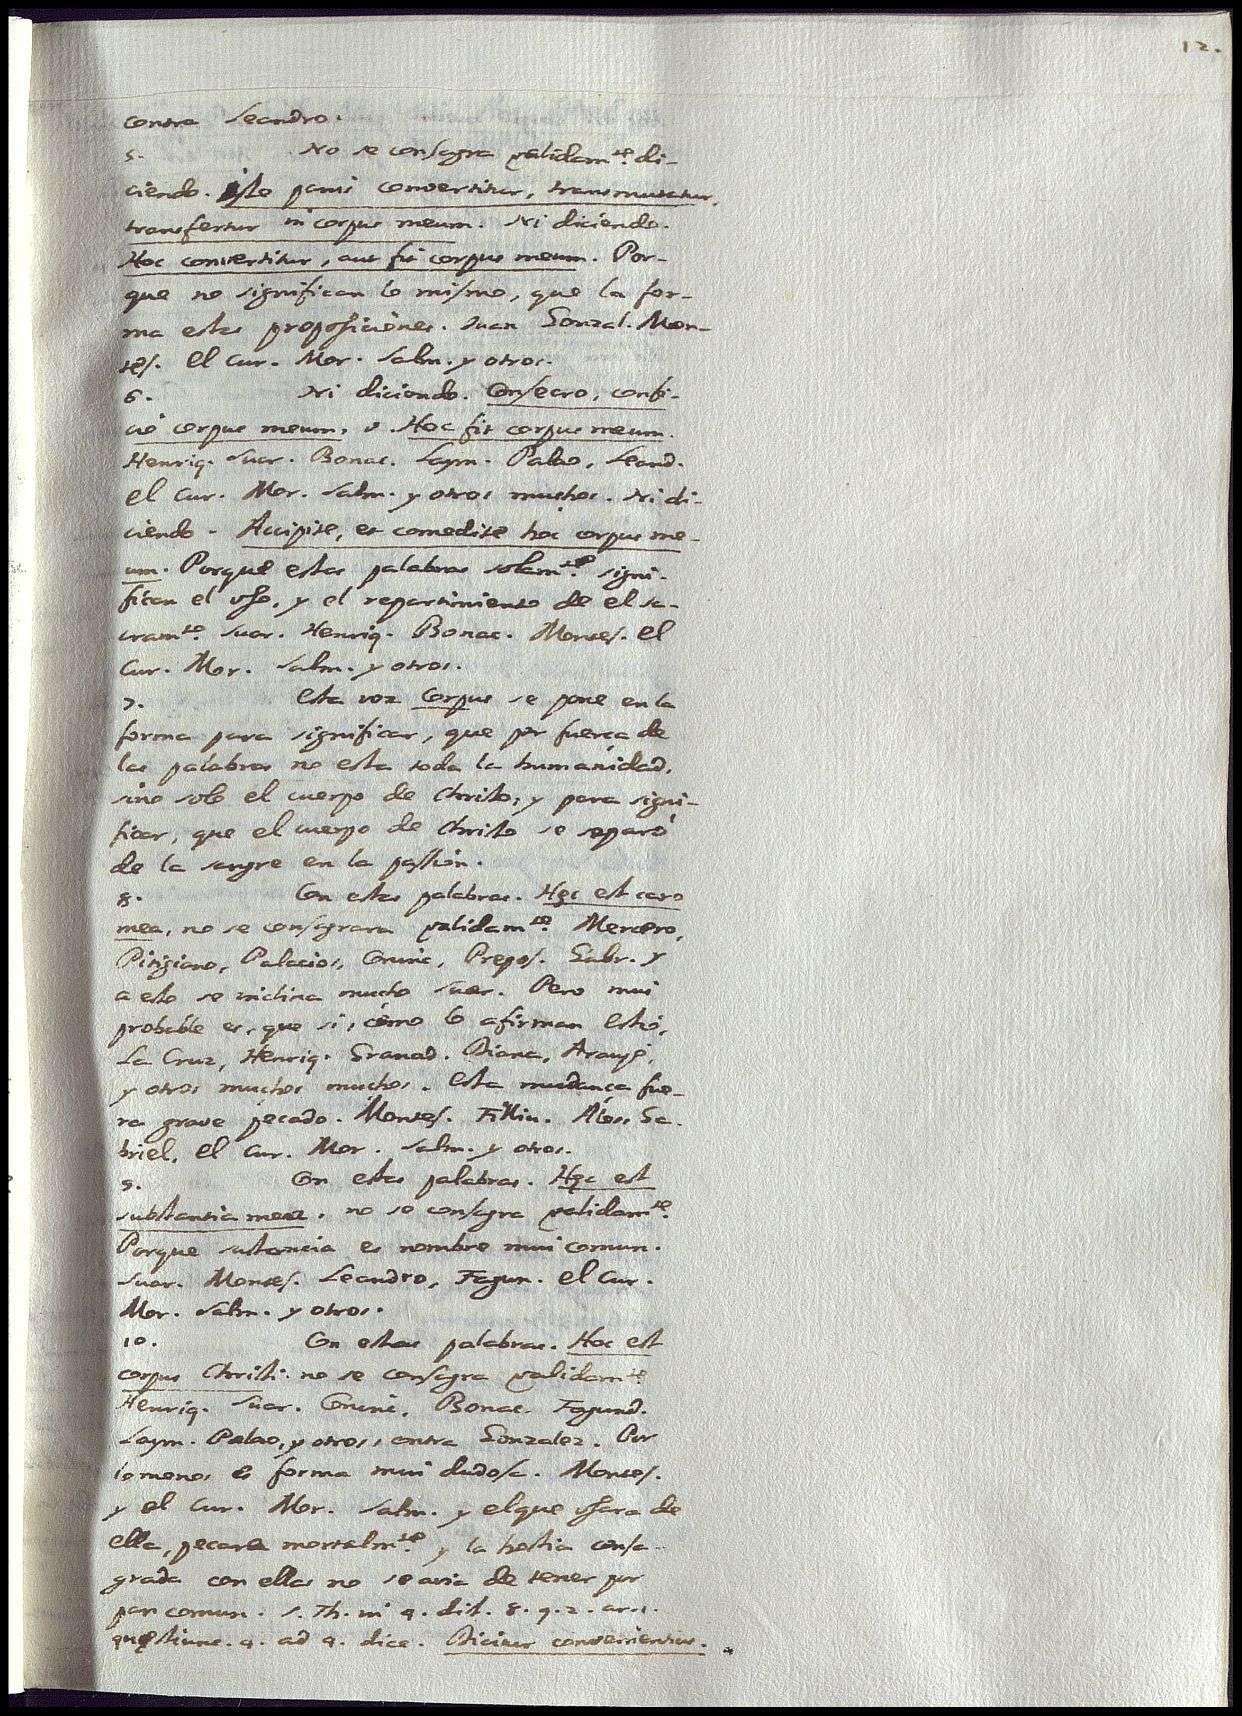 12.
contra Leandro.
5. No se consagra validam.te di-
ciendo. Iste panis convertitur, transmutatur,
transfertur in corpus meum. Ni diciendo.
Hoc convertitur, aut fit corpus meum. Por-
que no significan lo mismo, que la for-
ma estas proposiciones. Juan Gonzal. Mon-
tes. el Cur. Mor. Salm. y otros.
6. Ni diciendo. Consecro, confi-
cio corpus meum, v. Hoc fit corpus meum.
Henriq. Suar. Bonac. Laym. Palao, Leand.
el Cur. Mor. Salm. y otros muchos. Ni di-
ciendo. Accipite, et comedite hoc corpus me-
um. Porque estas palabras solam.te signi-
fican el uso, y el repartimiento de el sa-
cram.to Suar. Henriq. Bonac. Montes. el
Cur. Mor. Salm. y otros.
7. Esta voz Corpus se pone en la
forma para significar, que por fuerça de
las palabras no esta toda la humanidad,
sino solo el cuerpo de Christo, y para signi-
ficar, que el cuerpo de Christo se separò
de la sangre en la passion.
8. Con estas palabras. Hęc est caro
mea, no se consagrara validam.te Mercero,
Pitigiano, Palacios, Coninc, Prepos. Gabr. y
a esto se inclina mucho Suar. Pero mui
probable es, que si, como lo afirman Estio,
La Cruz, Henriq. Granad. Diana, Araujo,
y otros muchos muchos. Esta mudança fue-
ra grave pecado. Montes. Filliu. Alens. Ga-
briel, el Cur. Mor. Salm. y otros.
9. Con estas palabras. Hęc est
substantia mea, no se consagra validam.te
Porque sustancia es nombre mui comun.
Suar. Montes. Leandro, Fagun. el Cur.
Mor. Salm. y otros.
10. Con estas palabras. Hoc est
corpus Christi. no se consagra validam.te
Henriq. Suar. Coninc, Bonac. Fagund.
Laym. Palao, y otros, contra Gonzalez. Por
lo menos es forma mui dudosa. Montes.
y el Cur. Mor. Salm. y el que usara de
ella, pecara mortalm.te y la hostia consa-
grada con ellas no se avia de tener por
pan comun. S. Th. in 4. dist. 8. q. 2. ar. 1.
quęstiunc. 4. ad 4. dice. Dicitur convenientius.